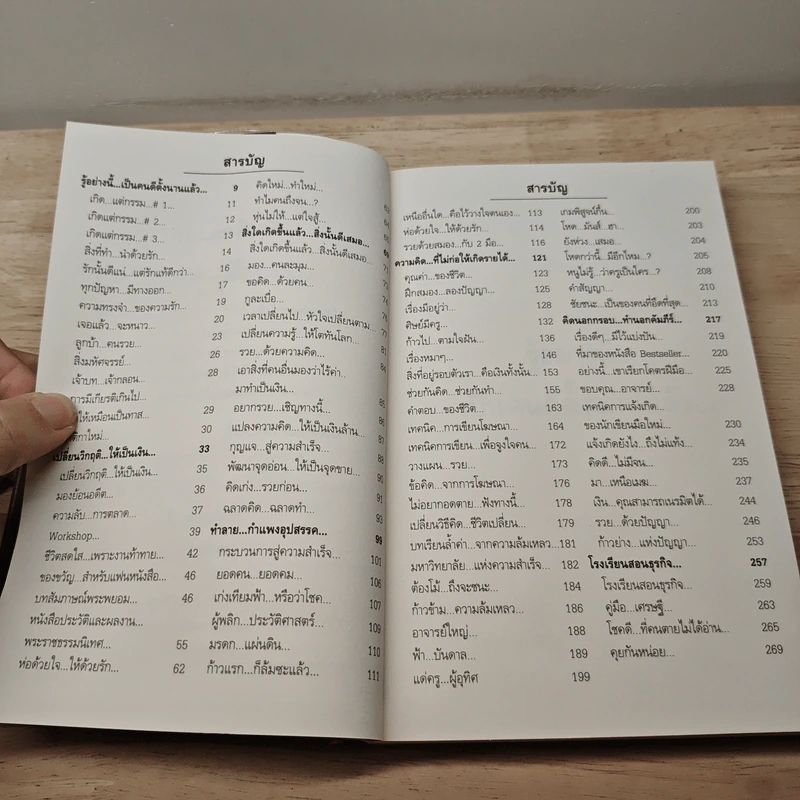 สารบัญ
รู้อย่างนี้...เป็นคนดีตั้งนานแล้ว... 9
เกิด...แต่กรรม...# 1... 11
เกิดแต่กรรม...# 2... 12
เกิดแต่กรรม...# 3... 13
สิ่งที่ทำ...นำด้วยรัก... 14
รักนั้นดีแน่...แต่รักแท้ดีกว่า... 16
ทุกปัญหา...มีทางออก... 17
ความทรงจำ...ของความรัก... 19
เจอแล้ว...จะหนาว... 20
ลูกบ้า...คนรวย... 23
สิ่งมหัศจรรย์... 26
เจ้าบท...เจ้ากลอน... 28
การมีเกียรติเกินไป...
ให้เหมือนเป็นทาส 29
กติกาใหม่... 30
เปลี่ยนวิกฤติ...ให้เป็นเงิน... 33
เปลี่ยนวิกฤติ...ให้เป็นเงิน... 35
มองย้อนอดีต... 36
ความลับ...การตลาด... 37
Workshop... 39
ชีวิตสดใส...เพราะงานท้าทาย... 42
ของขวัญ...สำหรับแฟนหนังสือ... 46
บทสัมภาษณ์พระพยอม... 46
หนังสือประวัติและผลงาน...
พระราชธรรมนิเทศ... 55
ห่อด้วยใจ...ให้ด้วยรัก... 62
คิดใหม่...ทำใหม่...
ทำไมคนถึงจน...?
ทุ่นไม่ให้...แต่ใจสู้...
สิ่งใดเกิดขึ้นแล้ว...สิ่งนั้นดีเสมอ...
สิ่งใดเกิดขึ้นแล้ว...สิ่งนั้นดีเสมอ...
มอง...คนละมุม...
ขอคิด...ด้วยคน...
กูละเบื่อ...
เวลาเปลี่ยนไป...หัวใจเปลี่ยนตาม...
เปลี่ยนความรู้...ให้โตทันโลก...
รวย...ด้วยความคิด...
เอาสิ่งที่คนอื่นมองว่าไร้ค่า...
มาทำเป็นเงิน... 85
อยากรวย...เชิญทางนี้... 87
แปลงความคิด...ให้เป็นเงินล้าน...
กุญแจ...สู่ความสำเร็จ... 88
พัฒนาจุดอ่อน...ให้เป็นจุดขาย... 90
คิดเก่ง...รวยก่อน... 91
ฉลาดคิด...ฉลาดทำ... 93
ทำลาย...กำแพงอุปสรรค... 99
กระบวนการสู่ความสำเร็จ... 101
ยอดคน...ยอดคม... 106
เก่งเทียมฟ้า...หรือว่าโชค... 107
ผู้พลิก...ประวัติศาสตร์... 109
มรดก...แผ่นดิน... 110
ก้าวแรก...ก็ล้มซะแล้ว... 111
สารบัญ
เหนืออื่นใด...คือไว้วางใจตนเอง... 113
ห่อด้วยใจ...ให้ด้วยรัก... 114
รวยด้วยสมอง...กับ 2 มือ... 116
ความคิด...ที่ไม่ก่อให้เกิดรายได้... 121
คุณค่า...ของชีวิต... 123
ฝึกสมอง...ลองปัญญา... 125
เรื่องมีอยู่ว่า... 128
ศิษย์มีครู... 132
ก้าวไป...ตามใจฝัน... 136
เรื่องหมาๆ... 146
สิ่งที่อยู่รอบตัวเรา...คือเงินทั้งนั้น... 153
ช่วยกันคิด...ช่วยกันทำ... 155
คำตอบ...ของชีวิต... 163
เทคนิค...การเขียนโฆษณา... 164
เทคนิคการเขียน...เพื่อจูงใจคน... 172
วางแผน...รวย... 173
ข้อคิด...จากการโฆษณา... 176
ไม่อยากอดตาย...ฟังทางนี้... 178
เปลี่ยนวิธีคิด...ชีวิตเปลี่ยน... 179
บทเรียนล้ำค่า...จากความล้มเหลว...181
มหาวิทยาลัย...แห่งความสำเร็จ... 182
ต้องโม้...ถึงจะชนะ... 184
ก้าวข้าม...ความล้มเหลว... 186
อาจารย์ใหญ่... 188
ฟ้า...บันดาล... 189
แด่ครู...ผู้อุทิศ 199
เกมพิสูจน์กึ๋น... 200
โหด...มันส์...ฮา... 204
ยังห่วง...เสมอ... 204
โหดกว่านี้...มีอีกไหม...? 205
หนูไม่รู้...ว่าครูเป็นใคร...? 208
คำสัญญา... 210
ชัยชนะ...เป็นของคนที่อึดที่สุด... 213
คิดนอกกรอบ...ทำนอกคัมภีร์... 217
เรื่องดีๆ...มีไว้แบ่งปัน... 219
ที่มาของหนังสือ Bestseller... 220
อย่างนี้...เขาเรียกโคตรฝีมือ... 225
ขอบคุณ...อาจารย์... 228
เทคนิคการแจ้งเกิด...
ของนักเขียนมือใหม่... 230
แจ้งเกิดยังไง...ถึงไม่แท้ง... 234
คิดดี...ไม่มีจน... 235
มา...เหนือเมฆ... 237
เงิน...คุณสามารถเนรมิตได้... 244
รวย...ด้วยปัญญา... 246
ก้าวย่าง...แห่งปัญญา... 253
โรงเรียนสอนธุรกิจ... 257
โรงเรียนสอนธุรกิจ... 259
คู่มือ...เศรษฐี... 263
โชคดี...ที่คนตายไม่ได้อ่าน... 265
คุยกันหน่อย... 269